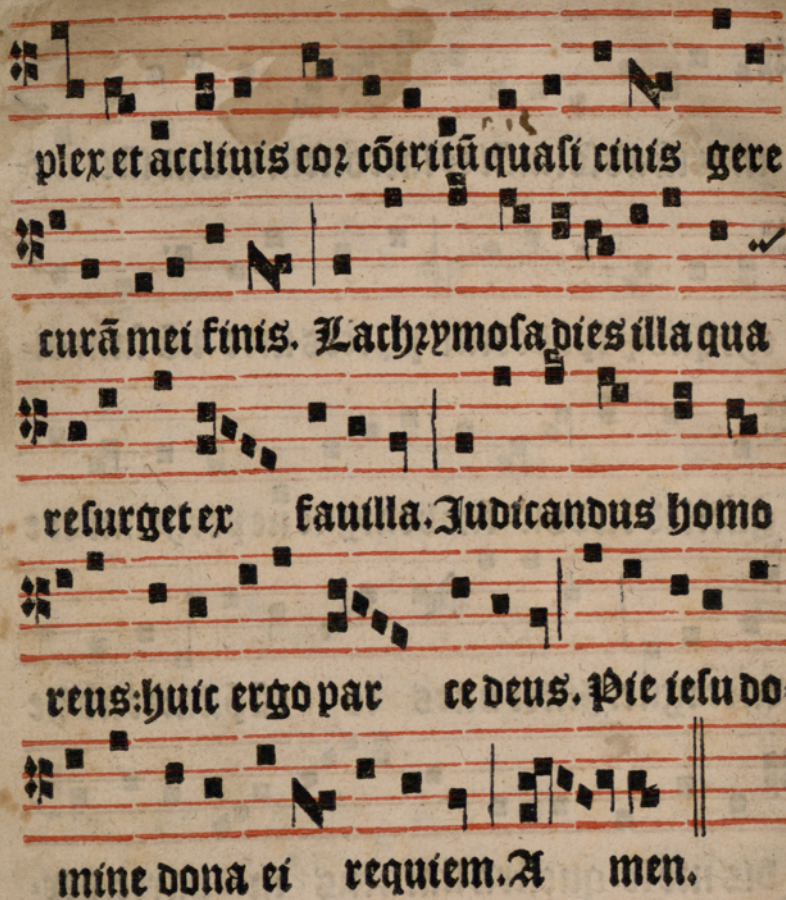 plex et accliuis cor cõtritũ quasi cinis gere
curã mei finis. Lachrymosa dies illa qua
resurget ex fauilla. Judicandus homo
reus: huic ergo par ce deus. Pie iesu do-
mine dona ei requiem. A men.